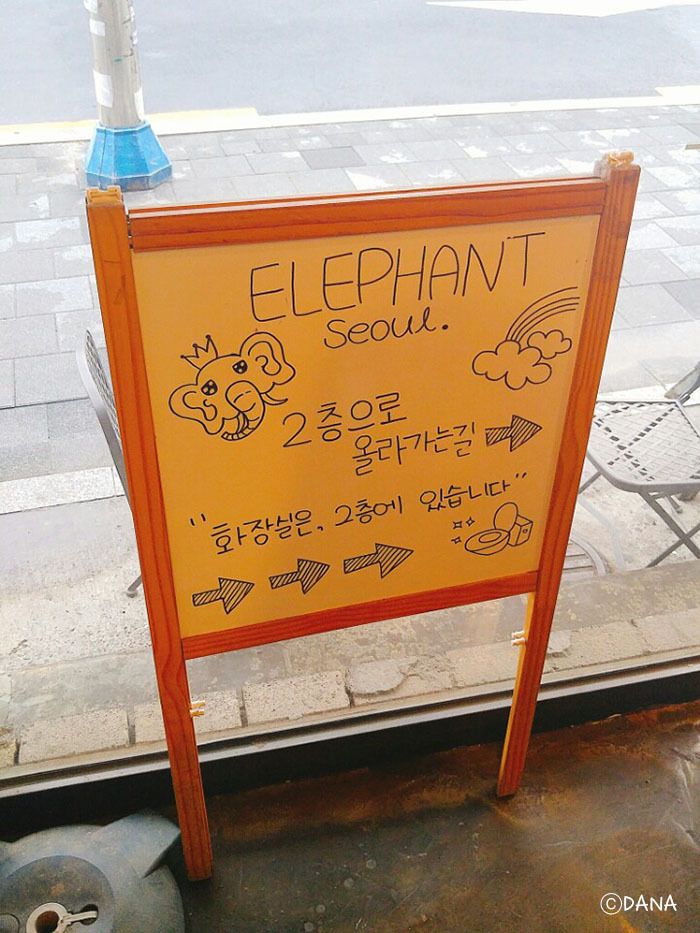 ELEPHANT
seoul.
2층으로
올라가는길
"화장실은, 2층에 있습니다"
ⓒDANA